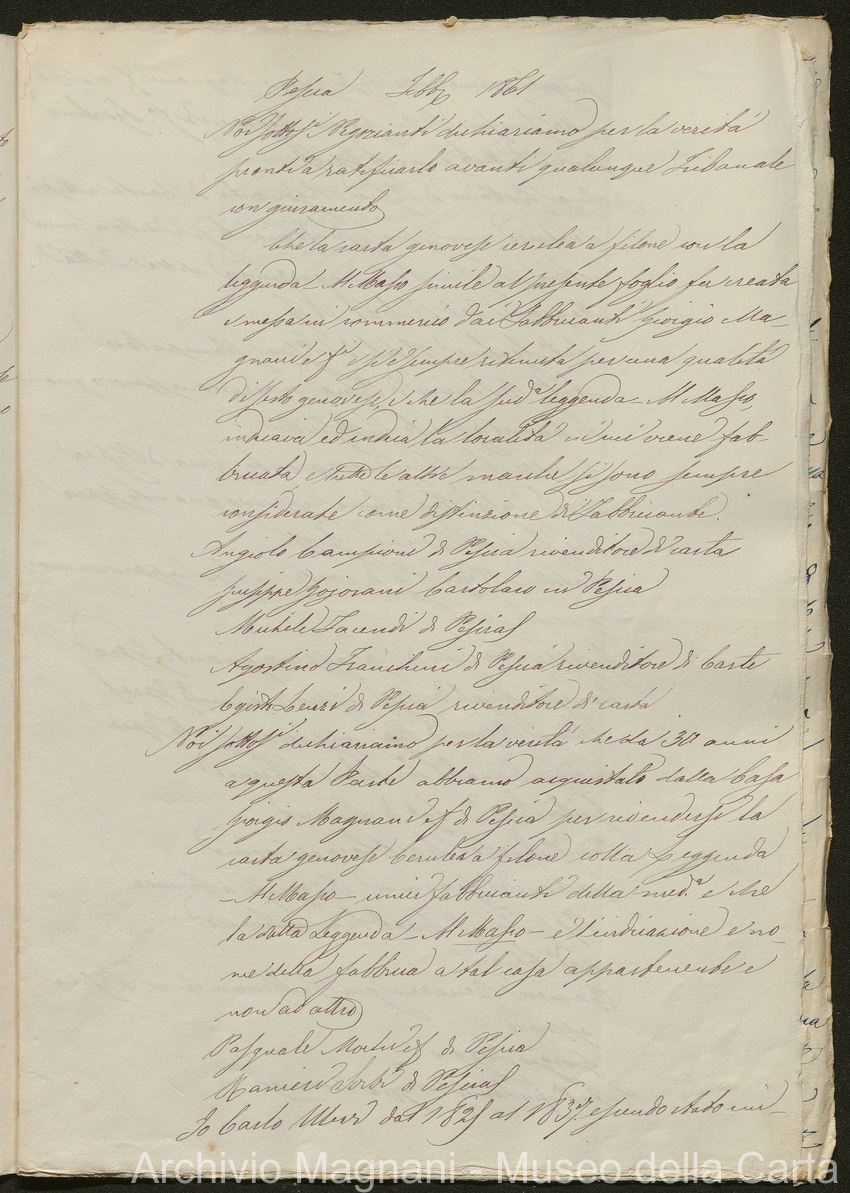 Pescia Febb. 1861
Noi sottos.i Negozianti dichiariamo per la verità
pronti a ratificarlo avanti qualunque Tribunale
con giuramento
Che la carta genovese cerulea a filone con la
leggenda - Al Masso simile al presente foglio fu creata
e messa in commercio dai Fabbricanti Giorgio Ma-
gnani e f.i e si è sempre ritenuta per una qualità
di sesto genovese, e che la sud.a leggenda - Al Masso,
indicava ed indica la località in cui viene fab-
bricata e tutte le altre marche si sono sempre
considerate come distinzione di Fabbricante.
Angiolo Campioni di Pescia rivenditore di carta
Giuseppe Cartolaro in Pescia
Michele di Pescia
Agostino Franchini di Pescia rivenditore di Carte
Egisto Lenzi di Pescia rivenditore di carta
Noi sottos.i dichiariamo per la verità che da 30 anni
a questa Parte abbiamo acquistato dalla Casa
Giorgio Magnani e f. di Pescia per rivendersi la
carta genovese Cerulea a filone colla Leggenda
- Al Masso - unici fabbricanti della med.a e che
la detta Leggenda - Al Masso - è l'indicazione e no-
me della fabbrica a tal casa appartenente e
non ad altro
Pasquale di Pescia
Ranieri Forti di Pescia
Io Carlo dal 1825 al 1837 essendo stato mi-
Archivio Magnani - Museo della Carta